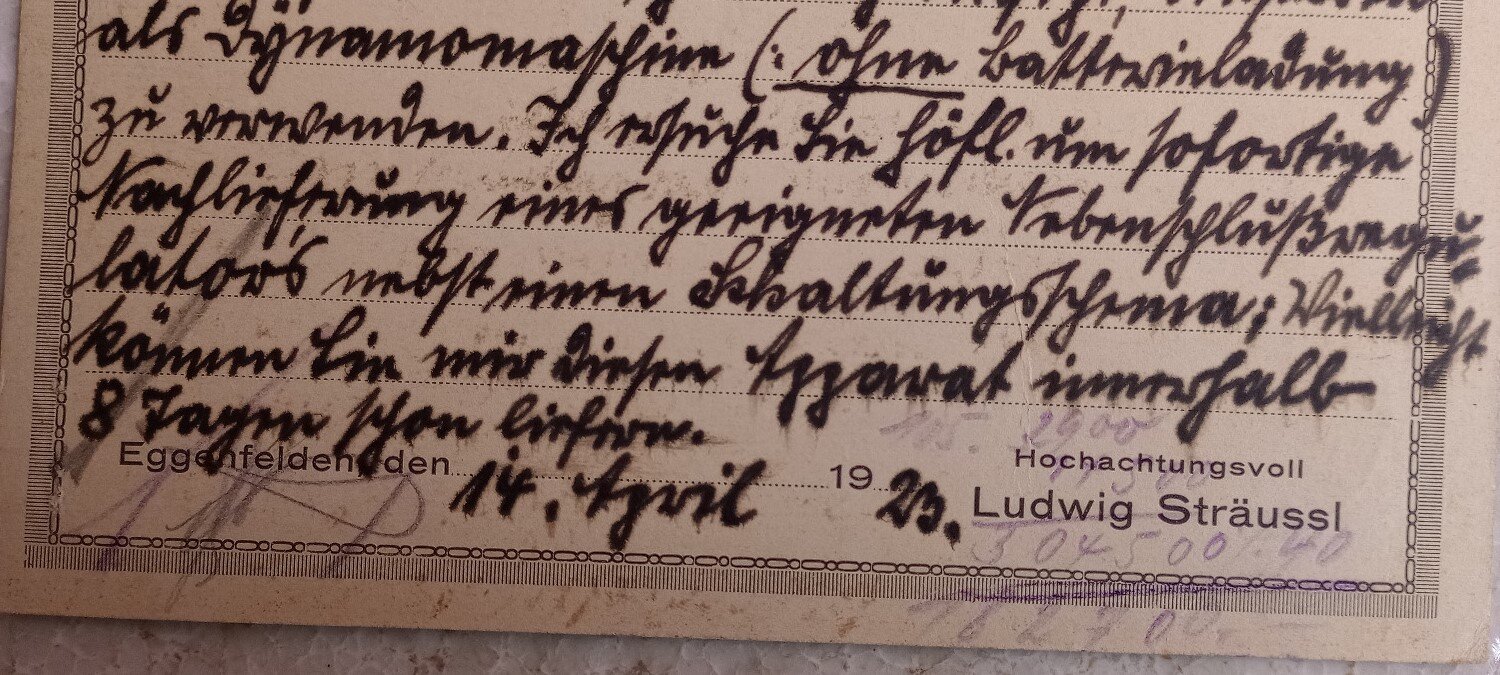 als Dynamomaschine (: ohne Batterieladung)
zu verwenden. Ich ersuche Sie höfl. um sofortige
Nachlieferung eines geeigneten Nebenschlußregu-
lators nebst einen Schaltungsschema; Vielleicht
können Sie mir diesen Apparat innerhalb
8 Tagen schon liefern.
Eggenfelden, den 14. April 1923.
Hochachtungsvoll
Ludwig Sträussl
2900
304500